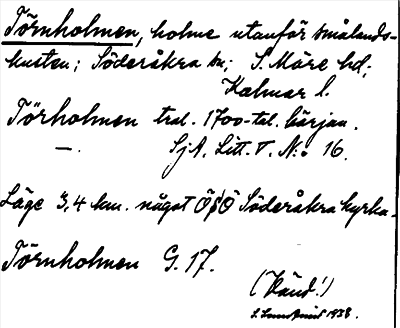 Törnholmen, holme utanför smålands-
kusten; Söderåkra sn; S. Möre hd;
Kalmar l.
Törholmen trol. 1700-tal. början.
—. SjA. Litt. T. No 16.
Läge 3,4 km. något ÖSÖ Söderåkra kyrka.
Törnholmen G. 17.
(Vänd!)
1938.